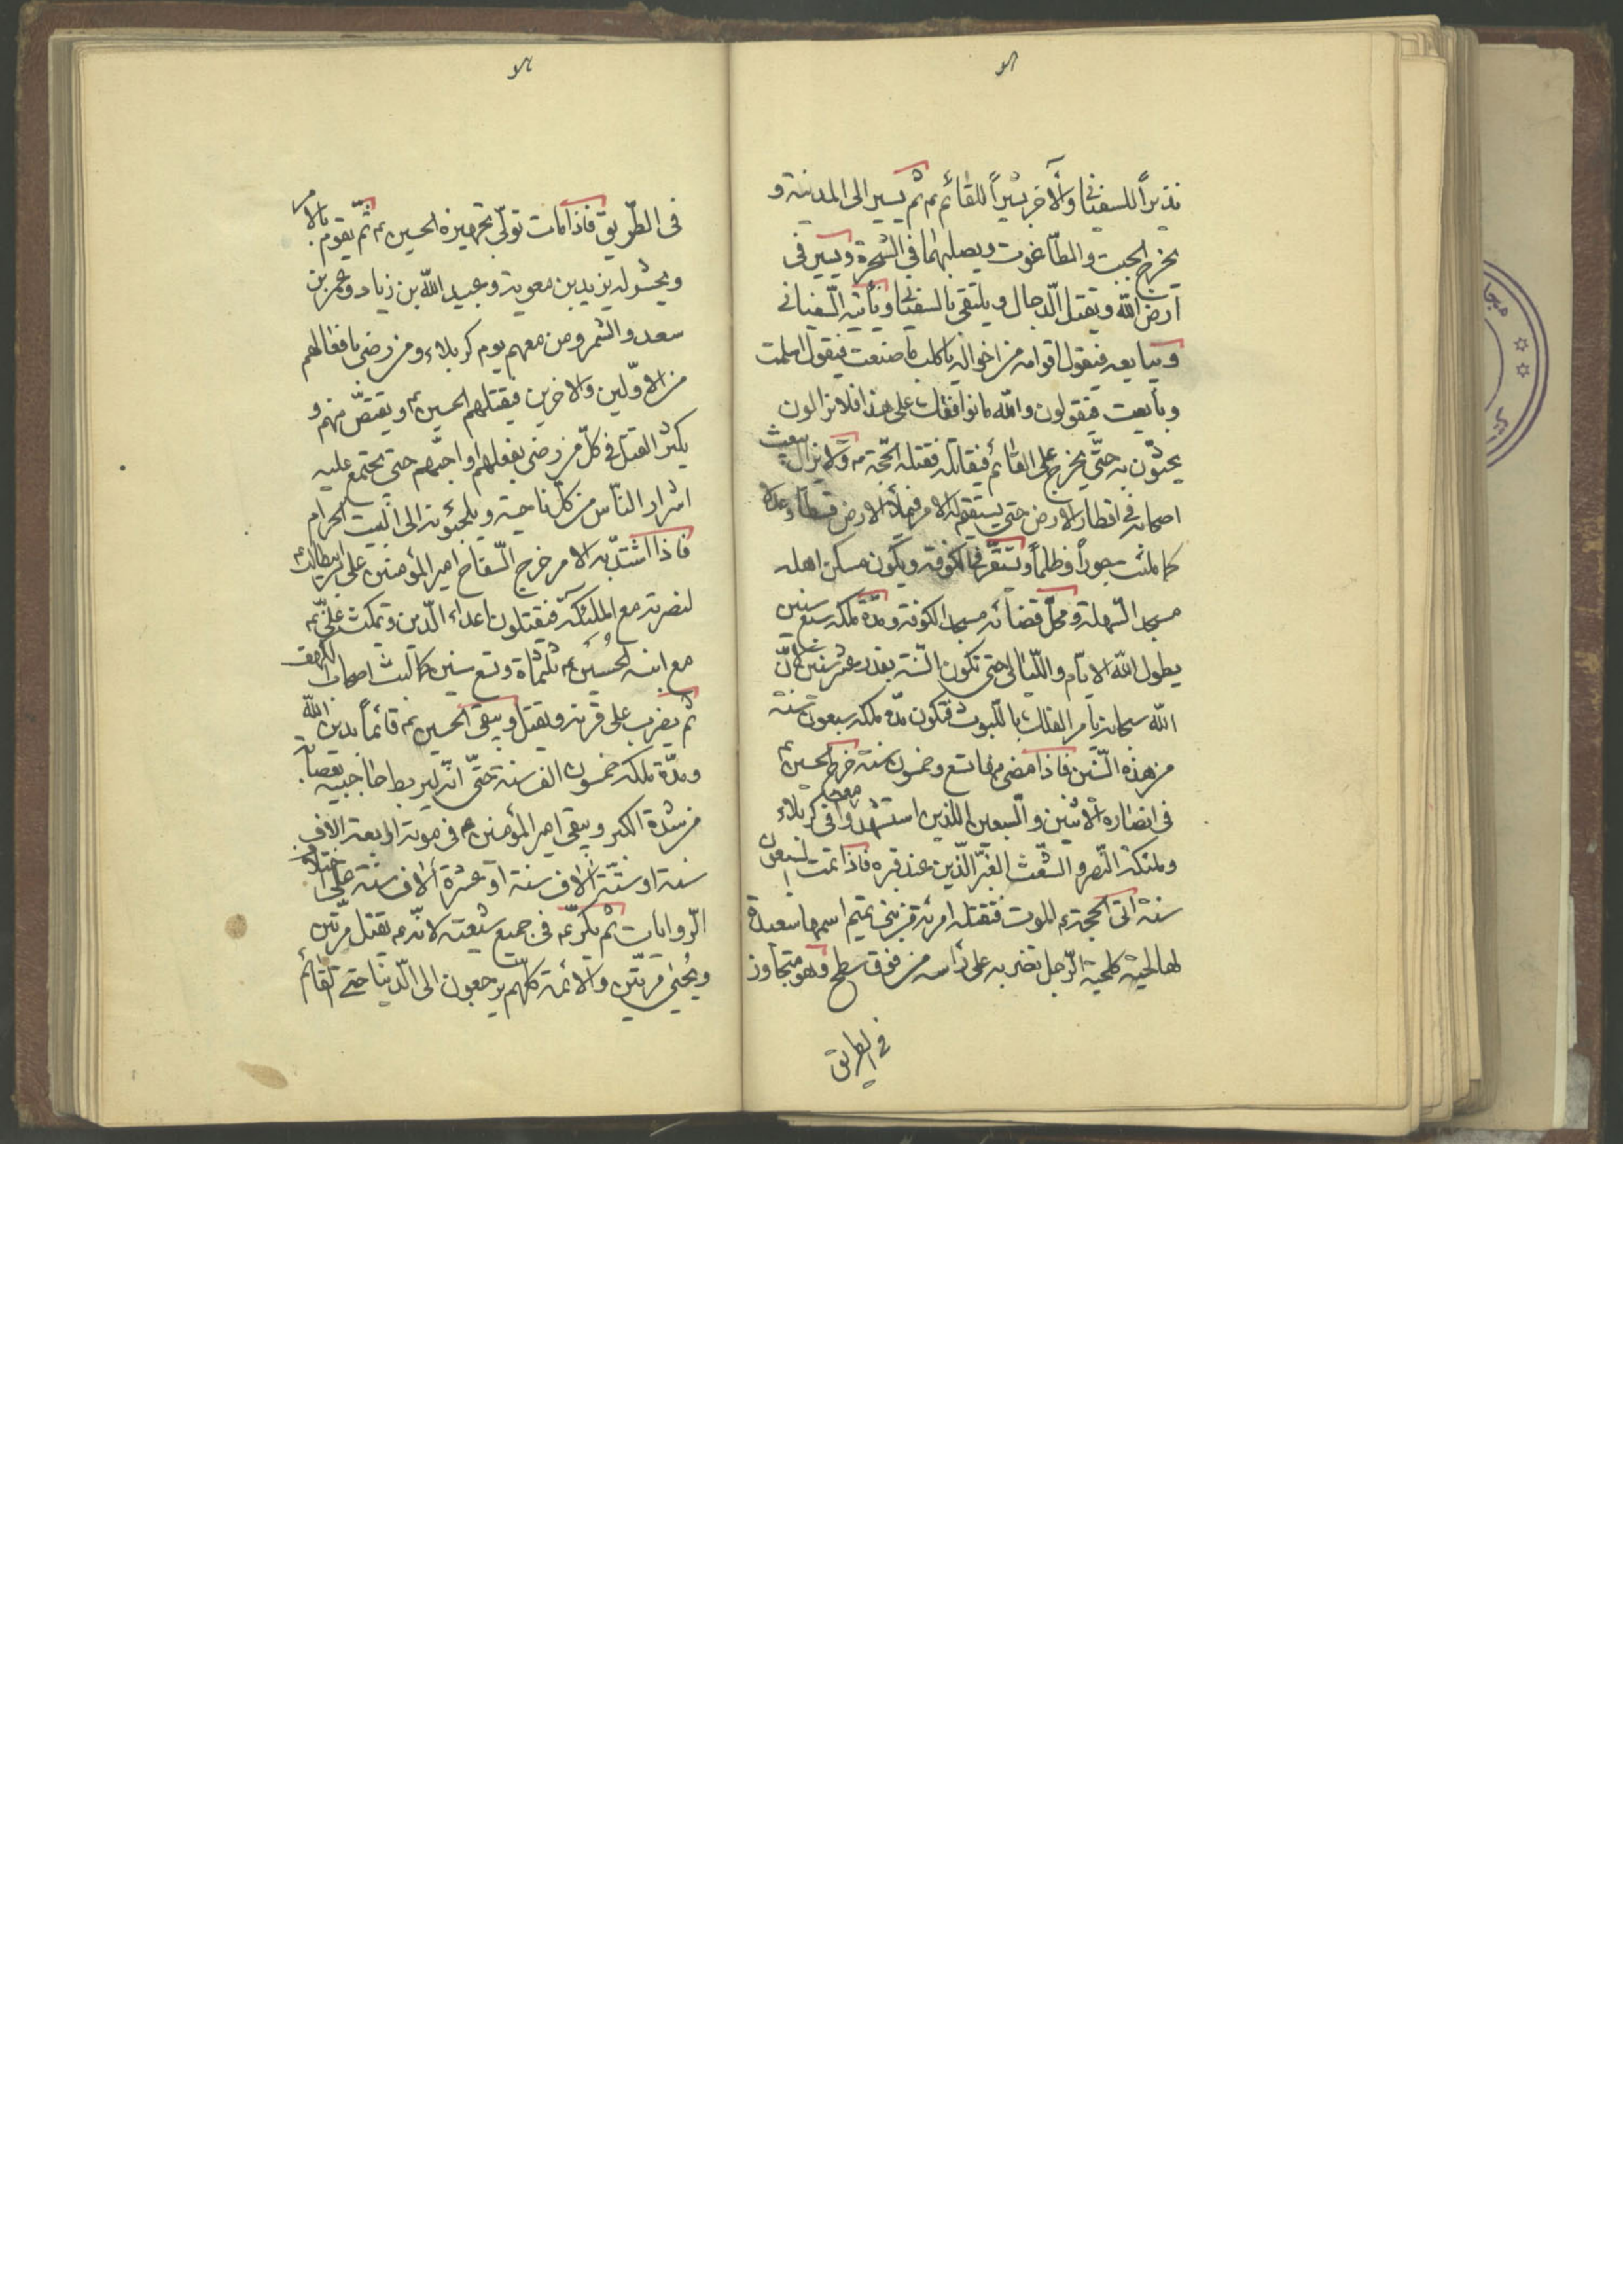 نذيراً للسفياني والاخر بشيراً للقائم عم ثم يسير الى المدينة و
يخرج الجبت والطاغوت ويصلبهما في الشجرة ويسير في
ارض الله ويقتل الدجال ويلتقي بالسفياني وياتيه السفياني
ويبايعه فيقول اقوامه من اخواله يا كلب ما صنعت فيقول اسلمت
وبايعت فيقولون والله ما نوافقك على هذا فلا يزالون
يحثون به حتى يخرج على القائم فيقاتله فقتله الحجة عم ولا يزال يبعث
اصحابه في اقطار الارض حتى يستقيم له الامر فيملأ الارض قسطا وعدلا
كما ملئت جوراً وظلماً ويستقر في الكوفة ويكون مسكن اهله
مسجد السهلة ومحل قضائه مسجد الكوفة ومدة ملكه سبع سنين
يطول الله الايام والليالي حتى تكون السنة بقدر عشر سنين لان
الله سبحانه يأمر الفلك باللبوث فتكون مدة ملكه سبعون سنة
من هذه السنين فاذا مضى منها تسع وخمسون سنة خرج الحسين عم
في انصاره الاثنين والسبعين الذين استشهدوا معه في كربلاء
وملئكة النصر والشعث الغبر الذين عند قبره فاذا تمت السبعون
سنة اتى الحجة ع الموت فتقتله امرئة من بني تميم اسمها سعيدة
لها لحية كلحية الرجل تضربه على رأسه من فوق سطح وهو متجاوز
في الطريق
في الطريق فاذا مات تولى تجهيزه الحسين عم ثم يقوم بالامر
ويحشر له يزيد بن معوية وعبيد الله بن زياد وعمر بن
سعد والشمر ومن معهم يوم كربلاء ومن رضى بافعالهم
من الاولين والاخرين فيقتلهم الحسين عم ويقتص منهم و
يكثر القتل في كل من رضى بفعلهم او احبهم حتى يجتمع عليه
اشرار الناس من كل ناحية ويلجئونه الى البيت الحرام
فاذا اشتد به الامر خرج السفاح امير المؤمنين علي بن ابيطالب عم
لنصرته مع الملئكة فيقتلون اعداء الدين ويمكث علي عم
مع ابنه الحسين عم ثلثمائة وتسع سنين كما لبث اصحاب الكهف
ثم يضرب على قرنه ويقتل ويبقى الحسين عم قائما بدين الله
ومدة ملكه خمسون الف سنة حتى انه ليربط حاجبيه بعصابة
من شدة الكبر ويبقى امير المؤمنين عم في موته اربعة الاف
سنة او ستة الاف سنة او عشرة الاف سنة على اختلاف
الروايات ثم يكر عم في جميع شيعته لانه عم يقتل مرتين
ويحيى مرتين والائمة كلهم يرجعون الى الدنيا حتى القائم